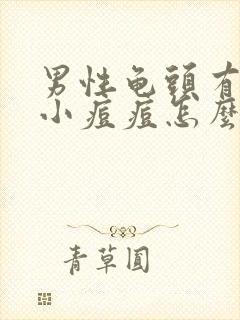 男性龟頭有
小痘痘怎麼
青草圓